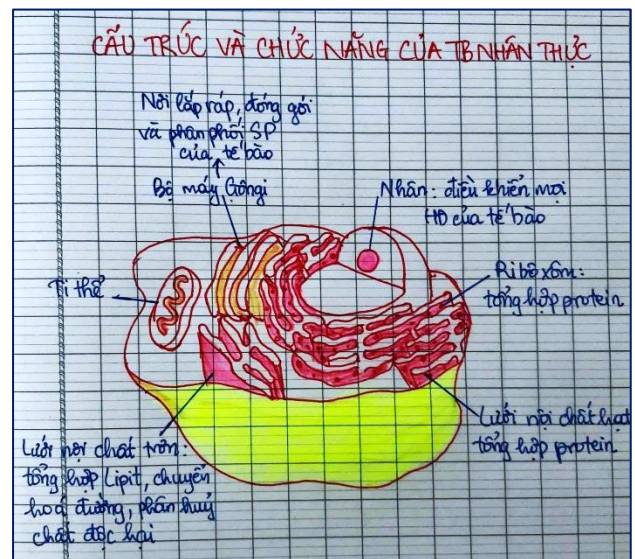 CẤU TRÚC VÀ CHỨC NĂNG CỦA TB NHÂN THỰC
Nơi lắp ráp, đóng gói
và phân phối SP
của tế bào
Bộ máy Gôngi
Nhân: điều khiển mọi
HĐ của tế bào
Ti thể
Ribôxôm:
tổng hợp protein
Lưới nội chất hạt
tổng hợp protein
Lưới nội chất trơn:
tổng hợp Lipit, chuyển
hoá đường, phân huỷ
chất độc hại